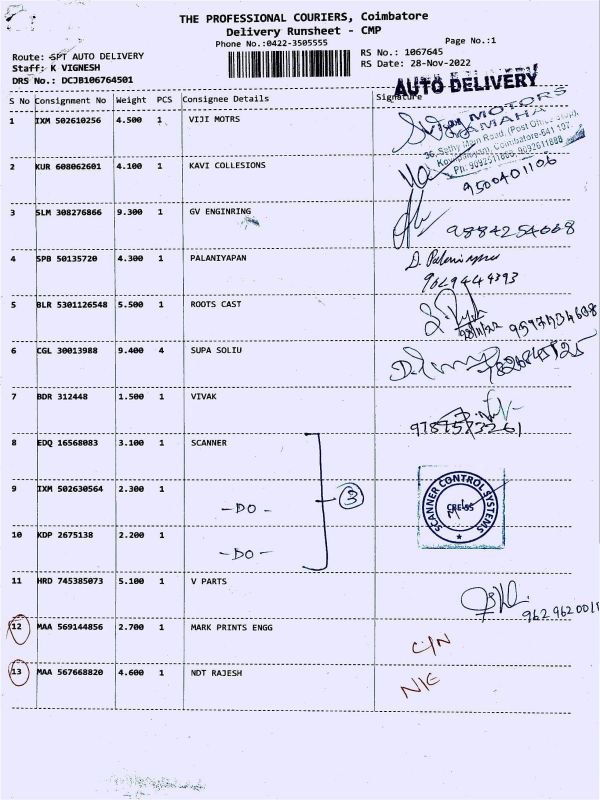 THE PROFESSIONAL COURIERS, Coimbatore
Delivery Runsheet - CMP
Phone No.:0422-3505555
Page No.:1
Route: SPT AUTO DELIVERY
RS No.: 1067645
Staff: K VIGNESH
RS Date: 28-Nov-2022
DRS No.: DCJB106764501
AUTO DELIVERY
S No Consignment No Weight PCS Consignee Details Signature
1 IXM 502610256 4.500 1 VIJI MOTRS
MOTORS
YAMAHA
36, Sathy Main Road, (Post Office
Coimbatore-641 107.
Ph: 9092511888, 9092611888
2 KUR 608062601 4.100 1 KAVI COLLESIONS
9500401106
3 SLM 308276866 9.300 1 GV ENGINRING
9884254668
4 SPB 50135720 4.300 1 PALANIYAPAN
9629444393
5 BLR 5301126548 5.500 1 ROOTS CAST
28/11/22
6 CGL 30013988 9.400 4 SUPA SOLIU
7 BDR 312448 1.500 1 VIVAK
8 EDQ 16568083 3.100 1 SCANNER
9 IXM 502630564 2.300 1
-DO-
3
SCANNER CONTROL SYSTEMS
10 KDP 2675138 2.200 1
-DO-
11 HRD 745385073 5.100 1 V PARTS
12 MAA 569144856 2.700 1 MARK PRINTS ENGG
C/N
13 MAA 567668820 4.600 1 NDT RAJESH
N/E